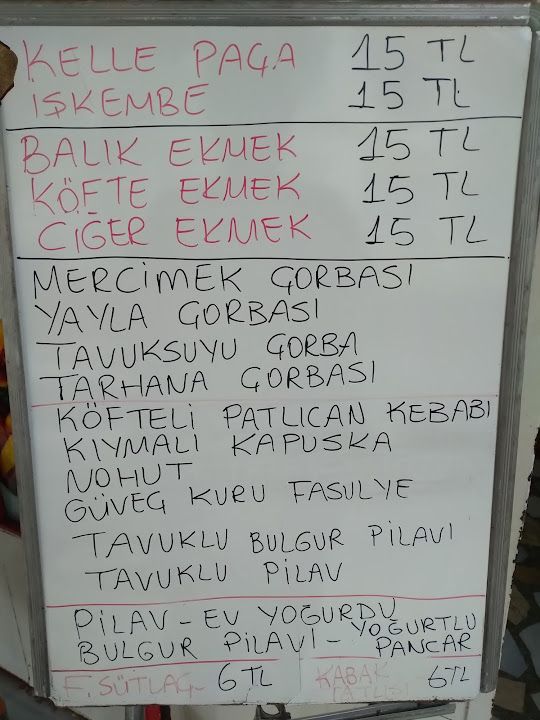 KELLE PAÇA 15 TL
İŞKEMBE 15 TL
BALIK EKMEK 15 TL
KÖFTE EKMEK 15 TL
CİĞER EKMEK 15 TL
MERCİMEK ÇORBASI
YAYLA ÇORBASI
TAVUKSUYU ÇORBA
TARHANA ÇORBASI
KÖFTELİ PATLICAN KEBABI
KIYMALI KAPUSKA
NOHUT
GÜVEÇ KURU FASULYE
TAVUKLU BULGUR PİLAVI
TAVUKLU PİLAV
PİLAV - EV YOĞURDU
BULGUR PİLAVI - YOĞURTLU PANCAR
F. SÜTLAÇ - 6 TL KABAK TATLISI 6 TL